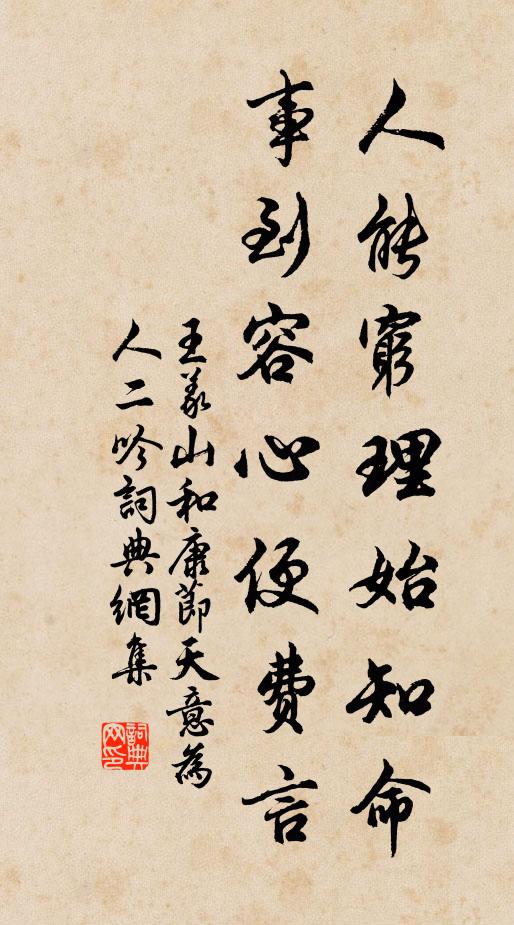 人能窮理始知命
事到容心便費言
王義山和康節天意為
人二吟詞典網集
詞典
网印